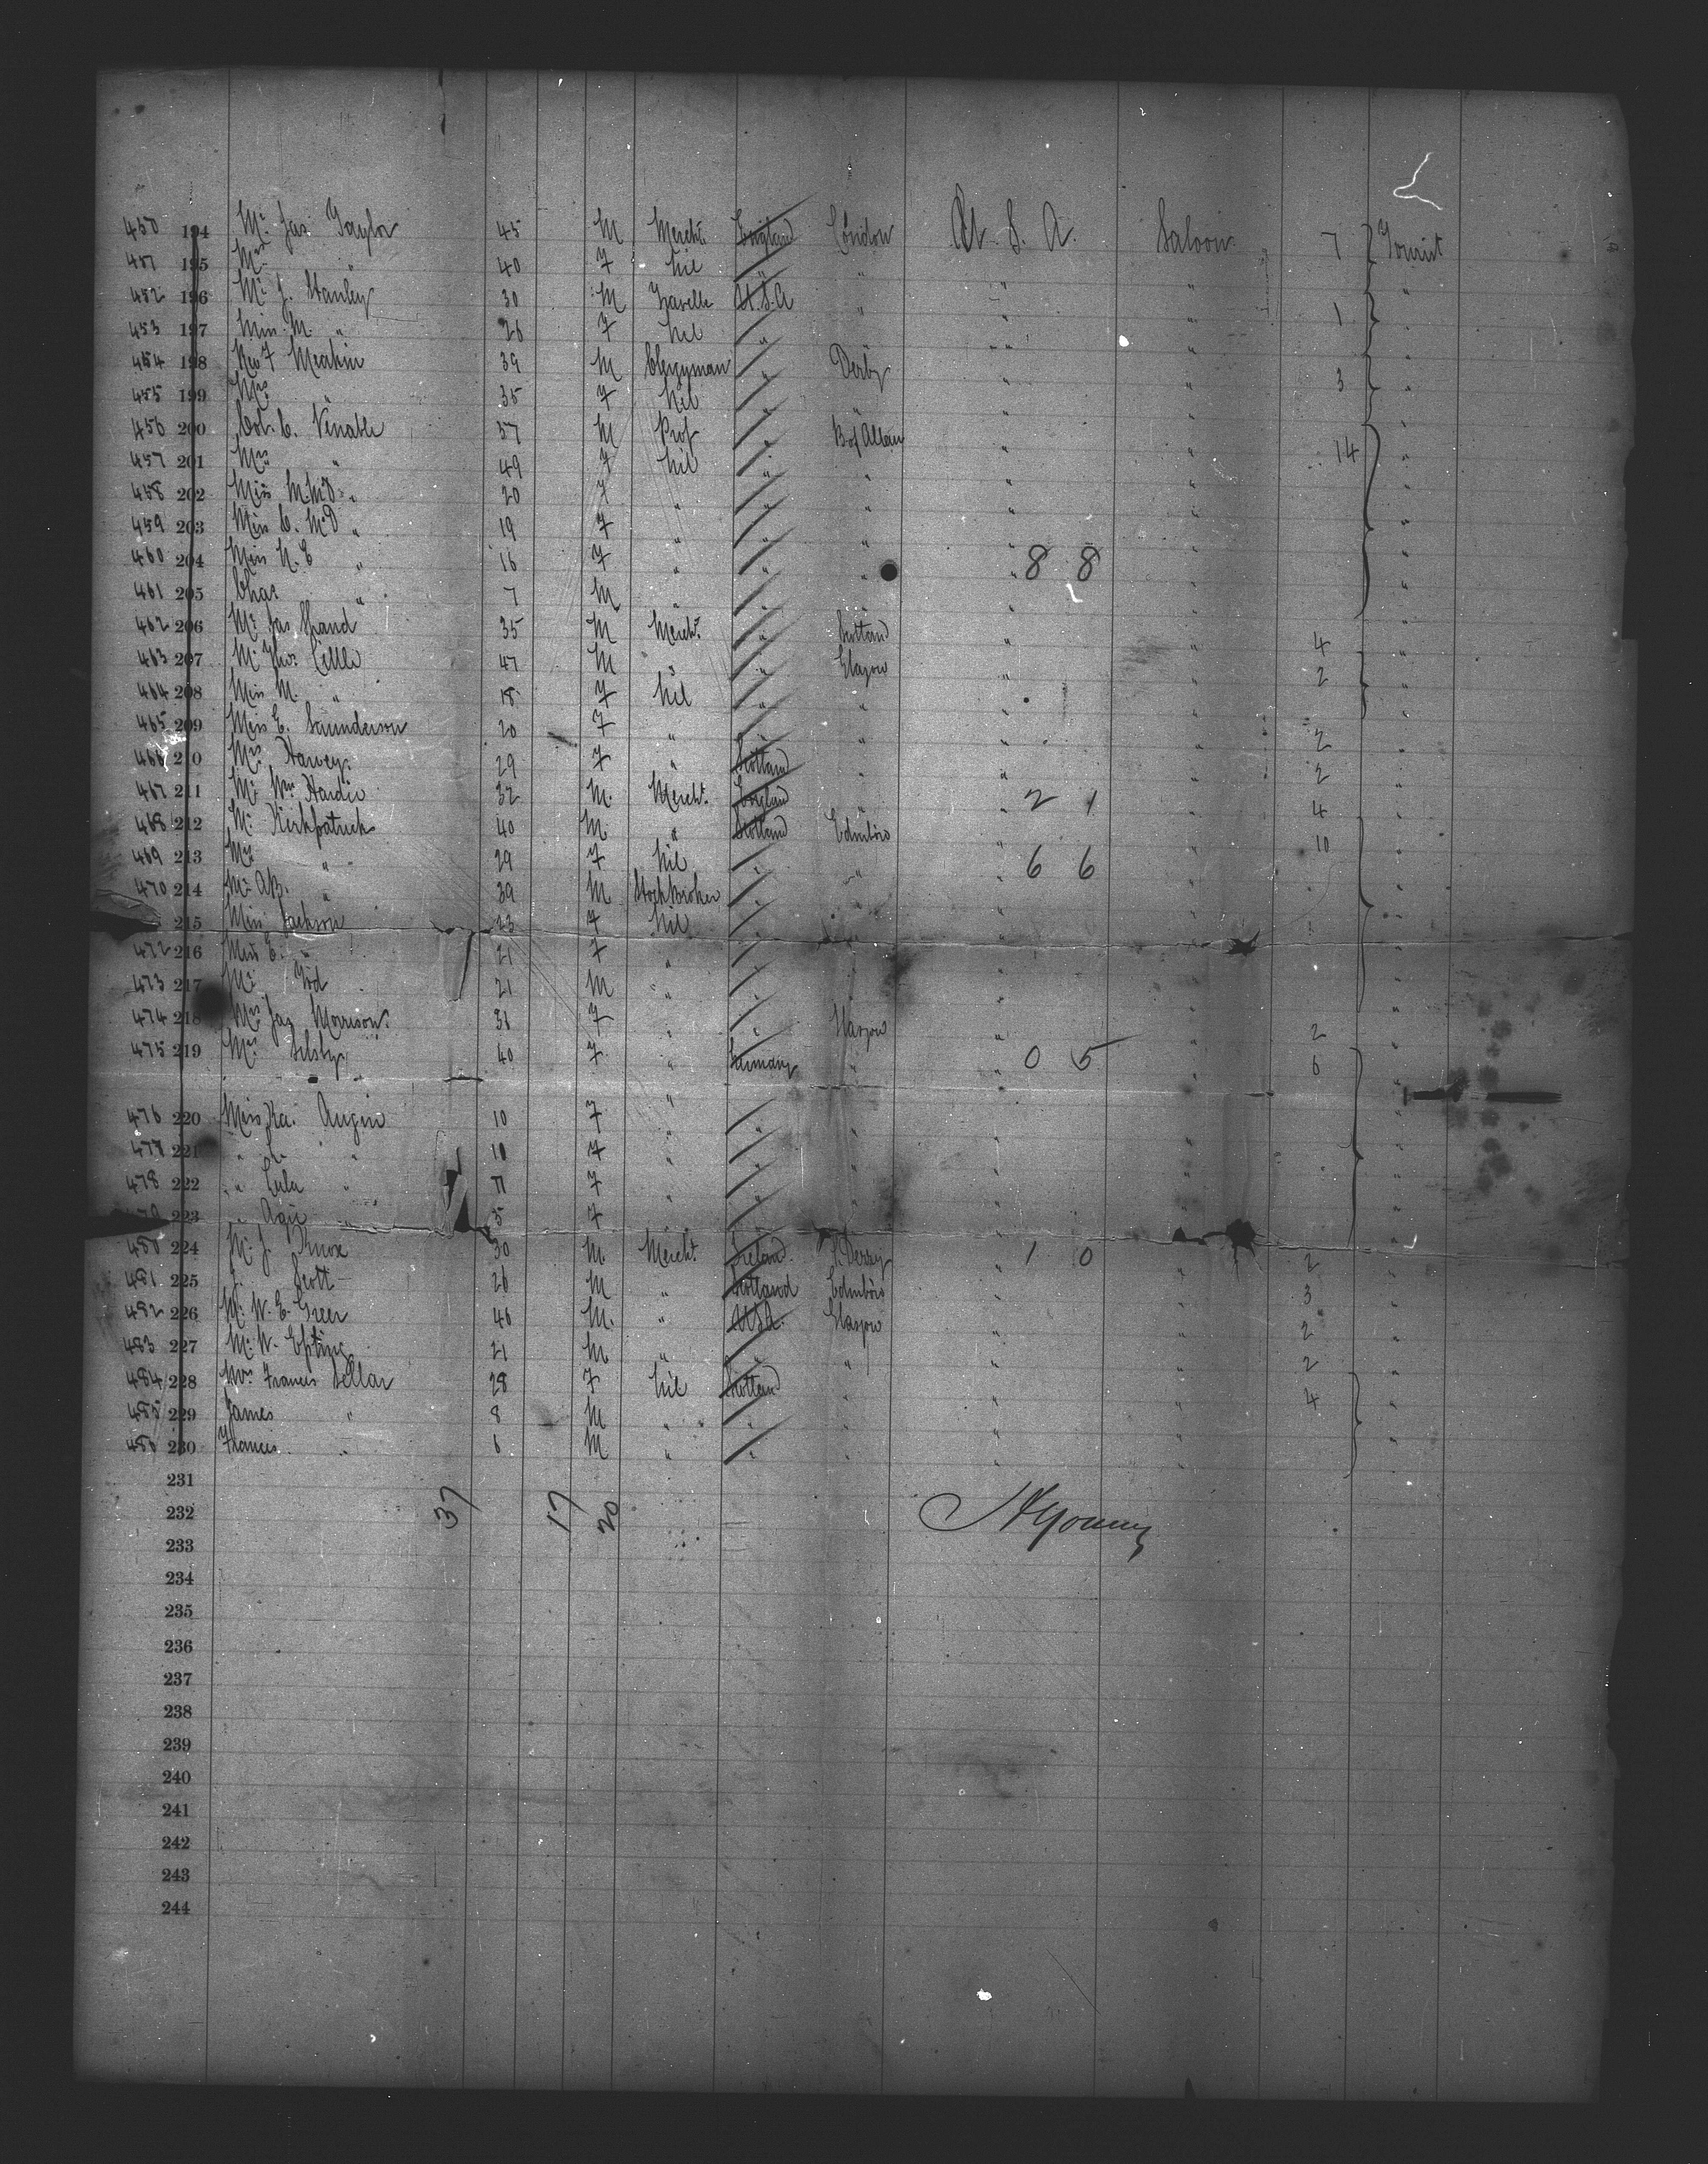 450 194 Mr. Jas. Taylor 45 M Mercht. England London U. S. A. Saloon 7 Tourist
451 195 Mrs " 40 F Nil " " " "
452 196 Mr. J. Stanley 30 M U.S.A " " " 1 "
453 197 Miss M. " 26 F Nil " " " " "
454 198 Rev F Meakin 39 M Clergyman " Derby " " 3 "
455 199 Mrs " 35 F Nil " " " " "
456 200 Col. C. Venable 57 M Prof " B of Allan " " 14 "
457 201 Mrs " 49 F Nil " " " " "
458 202 Miss M. McD " 20 F " " " " " "
459 203 Miss C. McD " 19 F " " " " " "
460 204 Miss N. E " 16 F " " " " 8 8 " "
461 205 Chas " 7 M " " " " " "
462 206 Mr. Jas Shand 35 M Mercht. " Scotland " " 4 "
463 207 Mr. Thos. 47 M " " Glasgow " " 2 "
464 208 Miss M. " 18 F Nil " " " " "
465 209 Miss E. Saunderson 20 F " " " " " 2 "
466 210 Mrs. Harvey 29 F " Scotland " " " 2 "
467 211 Mr. Wm. Hardie 32 M. Mercht. England " " 2 1 " 4 "
468 212 Mr. Kirkpatrick 40 M. " Scotland Edinboro " " 10 "
469 213 Mrs " 29 F Nil " " " 6 6 " "
470 214 Mr. AB. " 39 M Stockbroker " " " " "
215 Miss Jackson 23 F Nil " " " "
472 216 Miss E. " 21 F " " " " "
473 217 Mr. 21 M " " " " "
474 218 Mrs Jas Morrison 31 F " " Glasgow " " 2 "
475 219 Mrs. Selsby 40 F " Germany " " 0 5 " 6 "
476 220 Miss Ka. Augin 10 F " " " " " "
477 221 " " 10 F " " " " " "
478 222 " Lula " 7 F " " " " "
223 " " 5 F
480 224 Mr. J. Knox 30 M. Mercht. Ireland L. Derry " 1 0 " 2 "
481 225 J. Scott 26 M " Scotland Edinboro " " 3 "
482 226 Mr. W. E. Greer 46 M. " USA. Glasgow " " 2 "
483 227 Mr. W. Epting 21 M " " " " " 2 "
484 228 Mrs. Frances Sellar 28 F Nil Scotland " " " 4 "
485 229 James " 8 M " " " " " "
486 230 Francis " 6 M " " " " " "
231
232 37 17 20
233
234
235
236
237
238
239
240
241
242
243
244